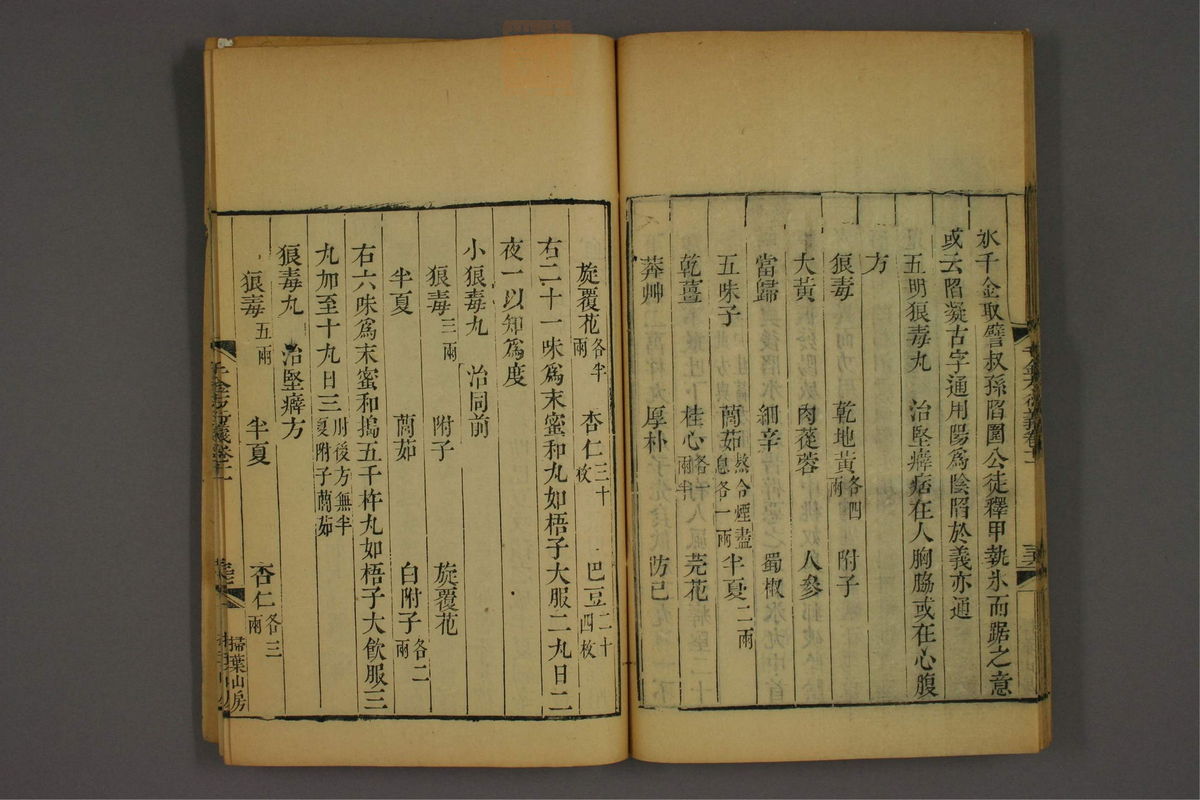 氷千金取譬叔孫䧟圍公徒釋甲執氷而踞之意
或云䧟凝古字通用陽爲陰䧟於義亦通
五明狼毒丸　治堅癖痞在人胸脇或在心腹
方
狼毒　乾地黃各四兩　附子
大黃　肉蓯蓉　人參
當歸　細辛　蜀椒
五味子　䕡茹熬令煙盡息各一兩　半夏二兩
乾薑　桂心各一兩半　芫花
莽艸　厚朴　防己
旋覆花各半兩　杏仁三十枚　巴豆二十四枚
右二十一味爲末蜜和丸如梧子大服二丸日二
夜一以知爲度
小狼毒丸　治同前
狼毒三兩　附子　旋覆花
半夏　䕡茹　白附子各二兩
右六味爲末蜜和搗五千杵丸如梧子大飲服三
丸加至十丸日三肘後方無半夏附子䕡茹
狼毒丸　治堅癖方
狼毒五兩　半夏　杏仁各三兩
掃葉山房